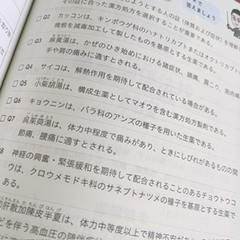 その証に合った漢方処方を選択することが
Q2 カッコンは、キンポウゲ科のハナトリカブトまたは
毒処理）を施して製したものを基原とする生薬である。
Q3 は、かぜのひき始めにおける諸症状、頭痛、肩こり、筋肉痛、
手や肩の痛みに適すとされる。
Q4 サイコは、解熱作用を期待して配合されている場合がある。
Q5 小柴胡湯は、構成生薬としてマオウを含む漢方処方製剤である。
Q6 キョウニンは、バラ科のアンズの種子を用いた生薬である。
Q7 呉茱萸湯は、体力中程度で痛みがあり、ときにしびれがあるものの関
節痛、腰痛に適すとされる。
Q8 神経の興奮・緊張緩和を期待して配合されることのあるチョウトウコ
ウは、クロウメモドキ科のサネブトナツメの種子を基原とする生薬で
ある。
加陳皮半夏は、体力中等度以上で精神不安が
どを伴う高血圧の随伴症